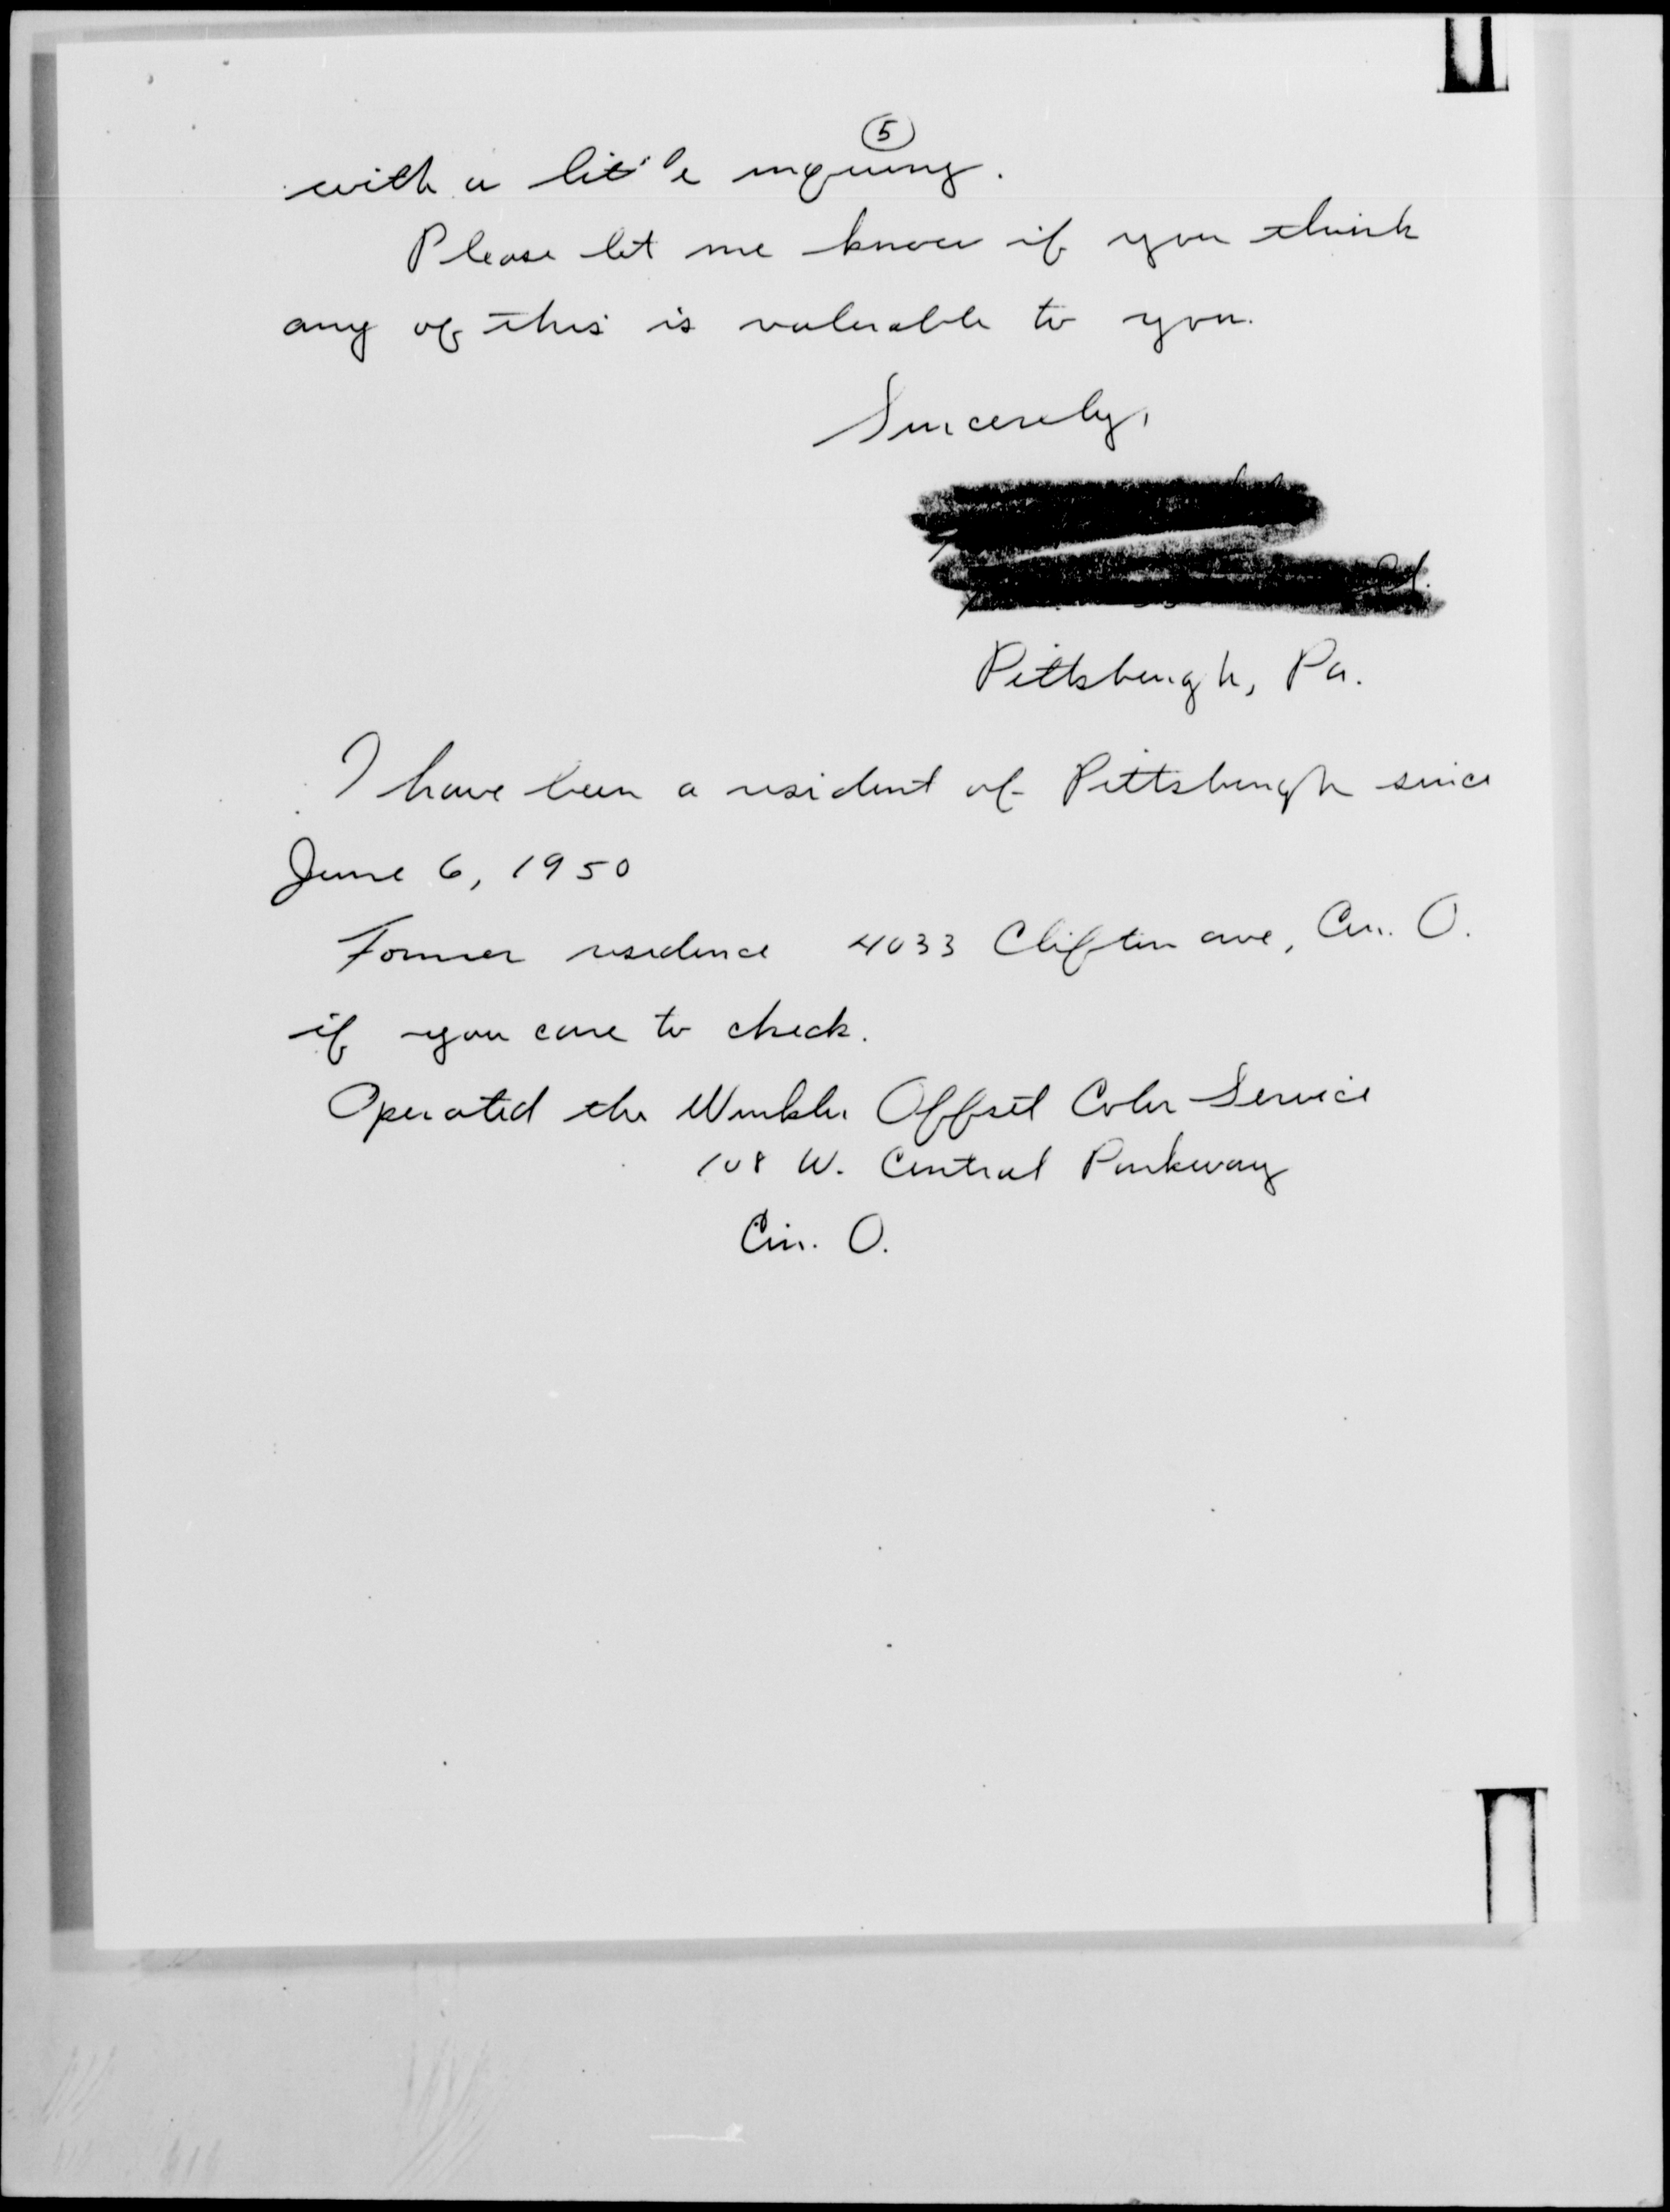 5
with a little inquiring.
Please let me know if you think
any of this is valuable to you.
Sincerely,
Pittsburgh, Pa.
I have been a resident of Pittsburgh since
June 6, 1950
Former residence 4033 Clifton ave, Cin. O.
if you care to check.
Operated the Winkler Offset Color Service
108 W. Central Parkway
Cin. O.